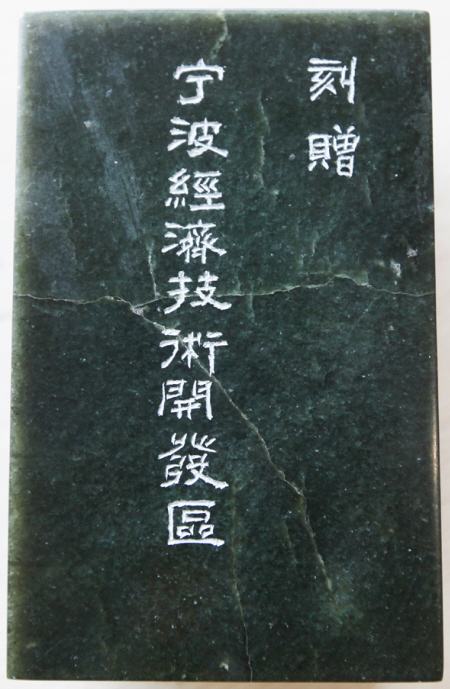 刻贈
宁波經濟技術開發區